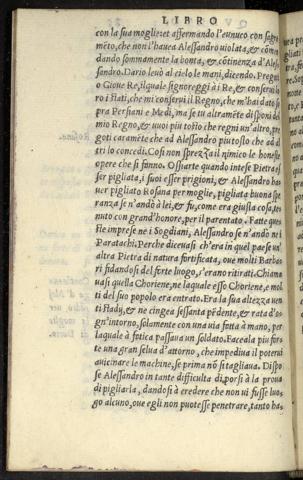 LIBRO
con la sua moglie: et affermando l'eunuco con sagra
mẽto, che non l'haueа Alessandro uiolata, & cõmen
dando sommamente la bonta, & cõtinenza d'Ales
sandro. Dario leuò al cielo le mani, dicendo. Prego
o Gioue Re, il quale signoreggi a i Re, & conserui lo
ro i stati, che mi conserui il Regno, che m'hai dato so
pra Persiani e Medi, ma se tu altramẽte disponi del
mio Regno, & uuoi piu tosto che regni un'altro, pre
goti caramẽte che ad Alessandro piu tosto che ad al
tri lo concedi. Cosi non sprezza il nimico le honeste
opere che si fanno. Ossiarte quando intese Pietra es
ser pigliata, i suoi esser prigioni, & Alessandro ha
uer pigliato Rosana per moglie, pigliata buona spe
ranza se n'andò a lei, & fu, come era giusta cosa, te
nuto con grand'honore, per il parentato. Fatte que
ste imprese ne i Sogdiani, Alessandro se n'andò ne i
Paratachi. Perche diceuasi ch'era in quel paese un'
altra Pietra di natura fortificata, oue molti Barba
ri fidandosi del forte luogo, s'erano ritirati. Chiama
uasi quella Choriene, ne laquale esso Choriene, e mol
ti del suo popolo era entrato. Era la sua altezza uen
ti stadij, & ne cingea sessanta pẽdente, & rata d'o
gn'intorno, solamente con una uia fatta à mano, per
laquale à fatica passaua un soldato. Faceala piu for
te una gran selua d'attorno, che impediua il poterui
auicinare le machine, se prima nõ si tagliaua. Dispo
se Alessandro in tante difficulta di porsi à la proua
di pigliarla, dandosi à credere che non ui fusse luo,
go alcuno, oue egli non puotesse penetrare, tanto ha,